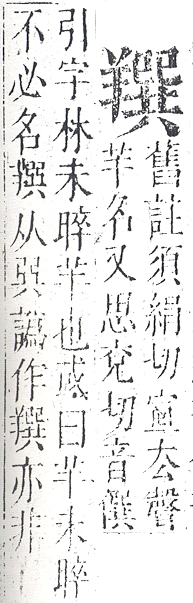 䍻
舊註須絹切宣去聲
羊名又思兗切音饌
引字林未晬羊也或曰羊未晬
不必名䍻从巺譌作䍻亦非